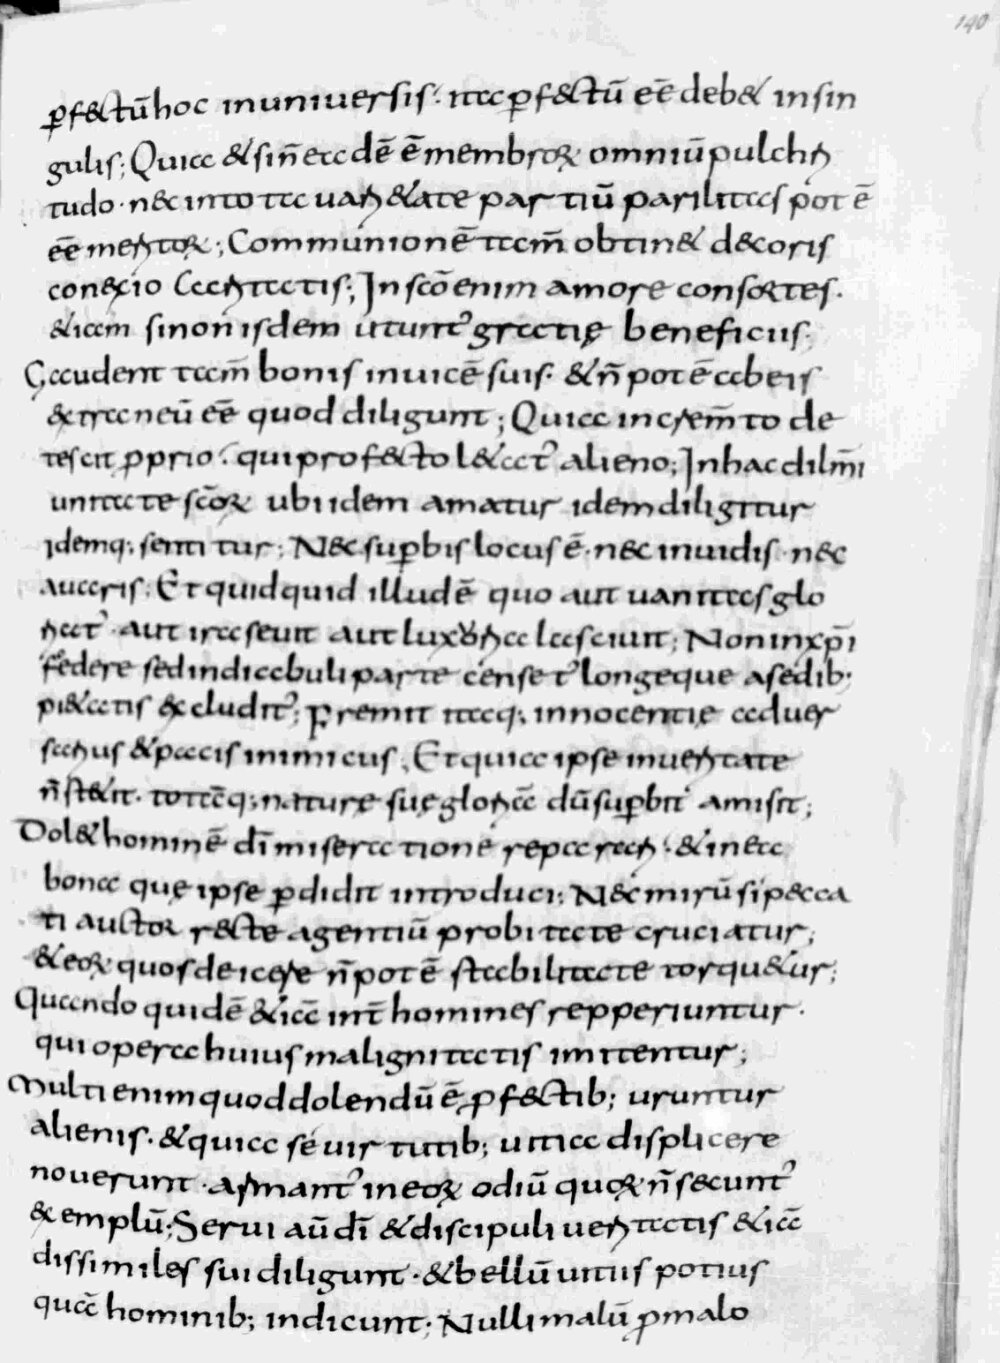 140
ꝑfectū hoc inuniuersis. ita ꝑfectū eē debet insin
gulis; Quia & sin̄ ea dē ē membroꝝ omniū pulchri
tudo. nec intota uarietate partiū parilitas pot ē
eē meritoꝝ; Communionē tam̄ obtinet decoris
conexio caritatis; In scō enim amore consortes.
etiam si non isdem utunt᷒ gratię beneficiis.
Gaudent tam̄ bonis inuicē suis. & n̄ pot ē ab eis
extraneū eē quod diligunt; Quia increm̄to di
tescit ꝓprio. qui profecto laetat᷒ alieno; In hac dilm̄i
unitate sc̄oꝝ ubi idem amatur idem diligitur
idemq; sentitur; Nec suꝑbis locus ē. nec inuidis. nec
auaris. Et quidquid illud ē quo aut uanitas glo
riat᷒. aut ira seuit aut luxoria lasciuit; Non in xp̄i
federe sed in diabuli parte censet᷒ longeque a sedib;
pietatis excludit᷒; Fremit itaq; innocentię aduer
sarius & pacis inimicus. Et quia ipse in ueritate
n̄ stetit. totāq; naturę suę gloriā dū suꝑbit amisit;
Dolet hominē dī miseratione reparari. & in ea
bona quę ipse ꝑdidit introduci; Nec mirū si pecca
ti auctor recte agentiū probitate cruciatur;
& eoꝝ quos deicere n̄ pot ē stabilitate torquetur;
Quando quidē etiā int̄ homines repperiuntur.
qui opera huius malignitatis imitentur;
Multi enim quod dolendū ē ꝓfectib; uruntur
alienis. & quia se uirtutib; uitia displicere
nouerunt. armant᷒ in eoꝝ odiū quoꝝ n̄ secunt᷒
exemplū; Serui aū dī & discipuli ueritatis etiā
dissimiles sui diligunt. & bellū uitiis potius
quā hominib; indicunt; Nulli malū ꝓ malo